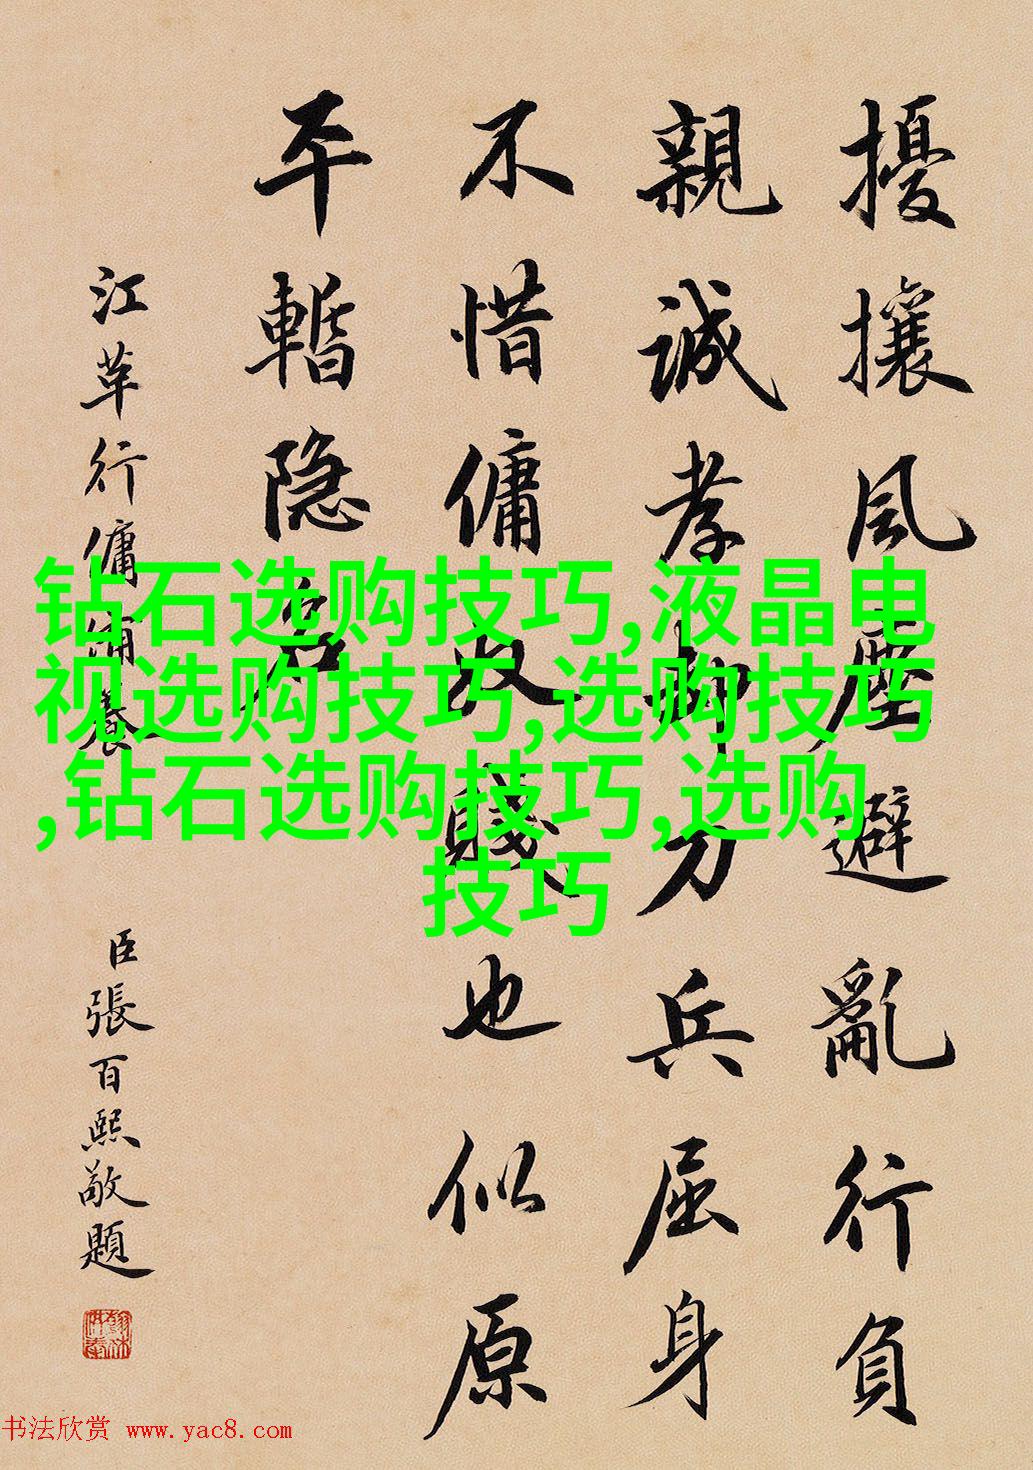 擾攘風塵避亂行負
親誠孝却刀兵屈身
不惜傭奴賤也似原
平暫隱名
江革行傭養
臣張百熙敬題
钻石选购技巧,液晶电
视选购技巧,选购技巧
,钻石选购技巧,选购
技巧
书法欣赏 www.yac8.com